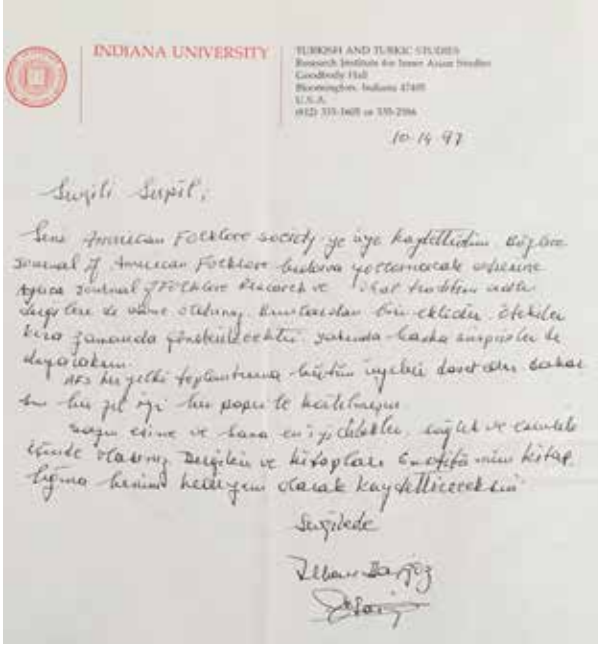 INDIANA UNIVERSITY
TURKISH AND TURKIC STUDIES
Research Institute for Inner Asian Studies
Goodbody Hall
Bloomington, Indiana 47405
U.S.A.
10-14-97
Sevgili Serpil,
Seni American Folklore society ye üye kaydettirdim. Böylece
Journal of American Folklore bedava gönderilecek adresine
Ayrıca Journal of Folklore Research ve Oral tradition adlı
dergilere de abone oldunuz. Bunlardan biri ektedir. Ötekiler
kısa zamanda gönderilecektir. yakında başka sürprizler de
duyacaksın.
AFS her yılki toplantısına bütün üyeleri davet eder
sen bu yıl için bir paper le
sayın eşine ve sana en iyi dilekler, sağlık ve esenlik
içinde olasınız Dergileri ve kitapları kitap
lığına benim hediyem olarak kaydettireceksin
Sevgilerle
İlhan Başgöz